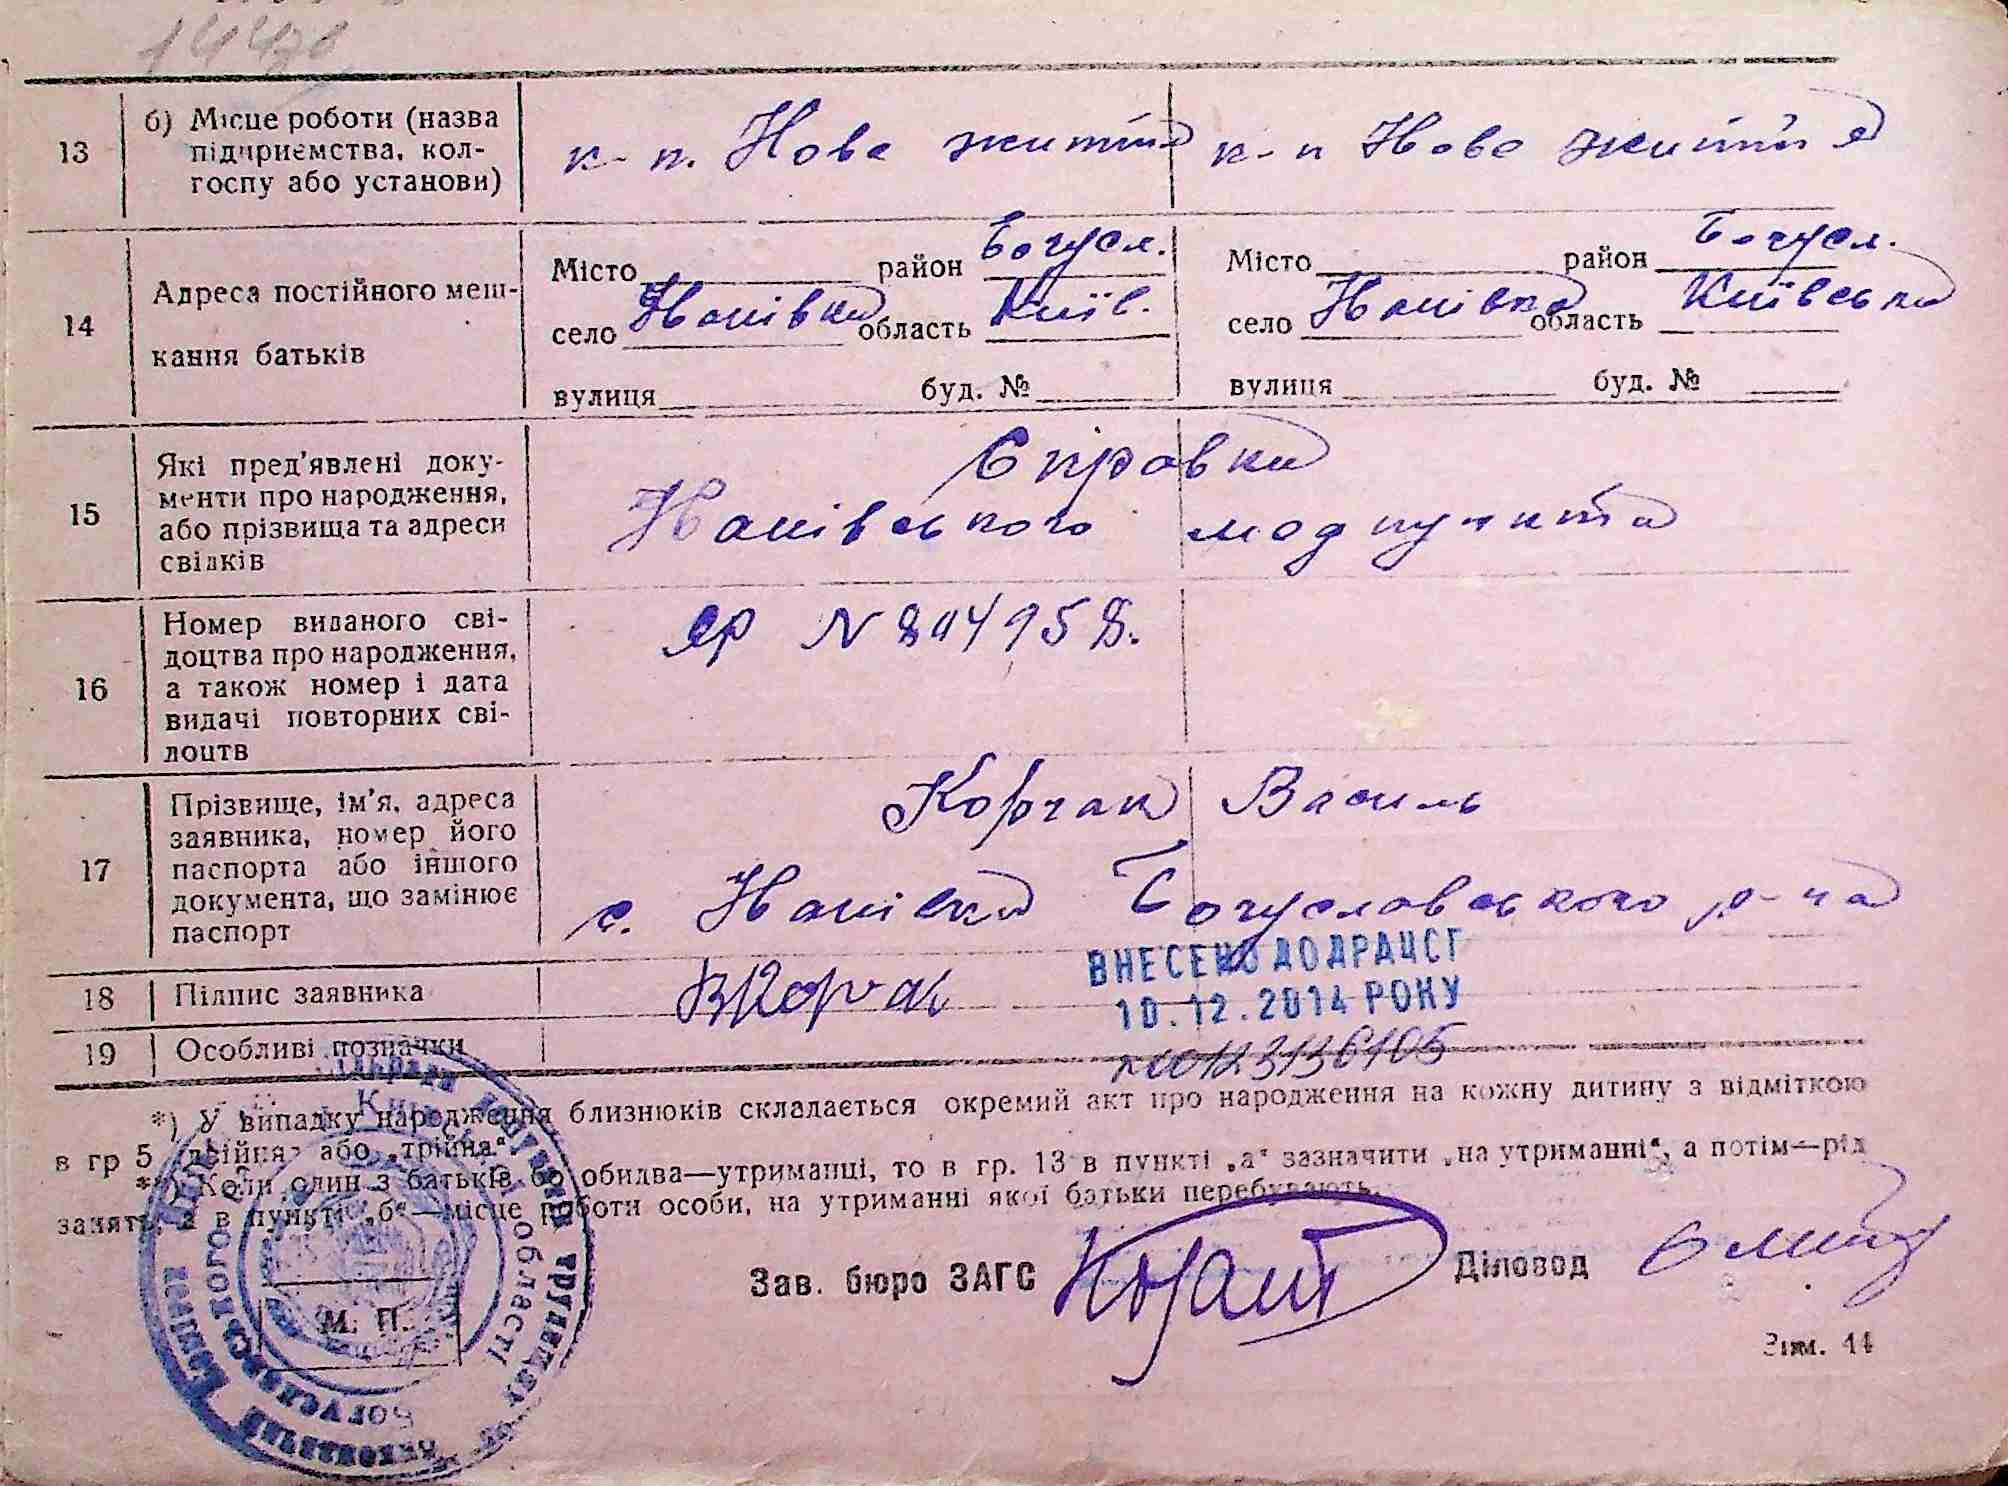 13
б) Місце роботи (назва підприємства, колгоспу або установи)
к-п. Нове життя
к-п Нове життя
14
Адреса постійного мешкання батьків
Місто район Богусл.
село Іванівка область Київ.
вулиця буд. №
Місто район Богусл.
село Іванівка область Київська
вулиця буд. №
15
Які пред'явлені документи про народження, або прізвища та адреси свідків
Справка
Іванівського медпункта
16
Номер виданого свідоцтва про народження, а також номер і дата видачі повторних свідоцтв
ЯР N
17
Прізвище, ім'я, адреса заявника, номер його паспорта або іншого документа, що замінює паспорт
Корчак Василь
с. Іванівка Богуславського р-на
18
Підпис заявника
ВКорчак
ВНЕСЕНО ДО ДРАЦСГ
10.12.2014 РОКУ
19
Особливі позначки
*) У випадку народження близнюків складається окремий акт про народження на кожну дитину з відміткою
в гр 5 „двійня" або „трійня"
**) Коли один з батьків бо обидва—утриманці, то в гр. 13 в пункті „а" зазначити „на утриманні", а потім—рід
занять, а в пункті „б"—місце роботи особи, на утриманні якої батьки перебувають.
Зав. бюро ЗАГС
Діловод
М. П.
Зам. 44